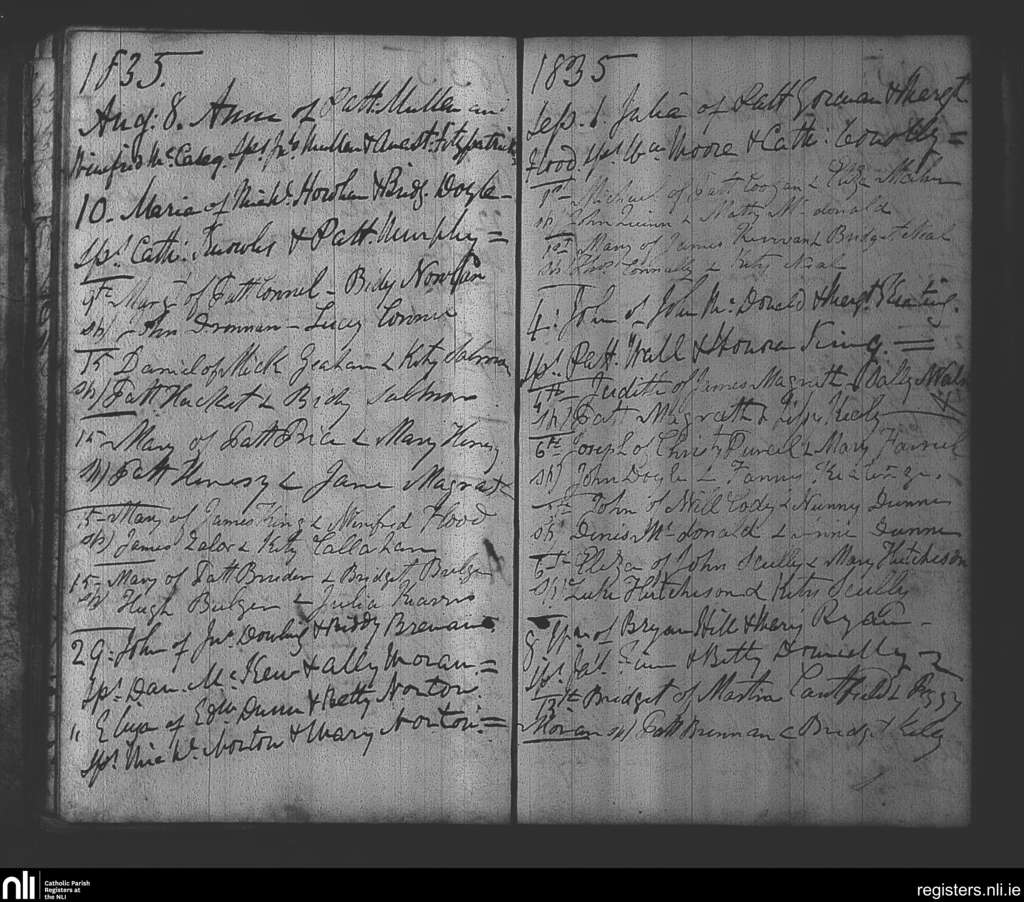 1835.
Aug: 8. Anne of Patt: Mullen and
Winifred McCasey Sps. Jas Mullen & Anast: Fitzpatrick
10. Maria of Mich. & Bridg. Doyle
Sps. Cath: Knowls & Patt. Murphy =
9th Marg of Patt Connel - Bidy Nowlan
Sps) John Drennan - Lucy Connor
15 Daniel of Mick Geahan & Kity Salmon
Sps) Patt Hacket & Bidy Salmon
15 - Mary of Patt Price & Mary Henesy
Sps) Patt Henesy & Jane Magrat
15 - Mary of James King & Winifred Flood
Sps) James Lalor & Kity Callahan
15 - Mary of Patt & Bridget Bulger
Sps) Hugh Bulger & Julia
29: John of Jno. Dowling & Biddy Brenan
Sps. Dan. McKew & Ally Moran =
" Eliza of Edw. Dunn & Betty Norton
Sps. Mich. Norton & Mary Norton =
1835
Sep. 1. Julia of Patt Gorman & Margt.
Flood. Sps. Wm. Moore & Cath:
1st - Michael of Patt Coogan & Eliza Maher
Sps) John Quinn & Matty Mc donald
1st Mary of James Kirwan & Bridget Neal
Sps) Thos. Connally & Kity Neal
4: John of John McDonald & Margt. Keating.
Sps. Patt. Wall & Honora King. =
4th - Judith of James Magrath - Sally
Sps) Pat Magrath & Kealy
6th Joseph of Christr Purcel & Mary Farrel
Sps) John Doyle & Fanny Keatinge.
John of Neill Cody & Nanny Dunne
Sps Denis Mc donald & Dunne
Eliza of John Scully & Mary Hutcheson
Sps) Luke Hutcheson & Kity Scully
8 of Bryan Hill & Mary Ryan -
Sps. & Betty Donnelly
13th Bridget of Martin Caulfield & Peggy
Moran Sps) Patt Brennan & Bridget Kealy
nli
Catholic Parish
Registers at
the NLI
registers.nli.ie